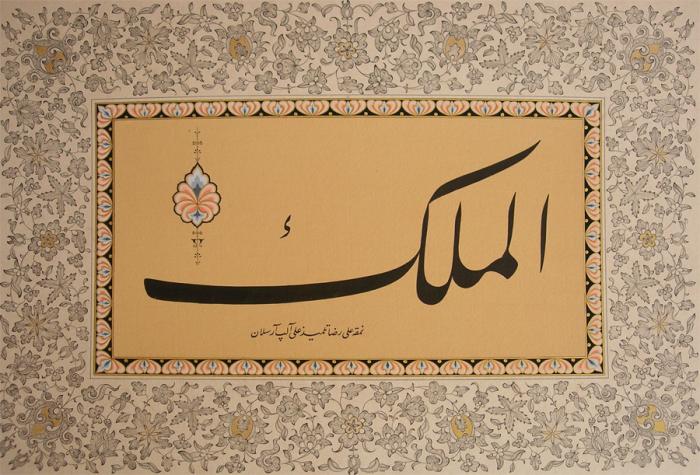 الملك
نمقه علی رضا تلمیذ علی آلپ آرسلان